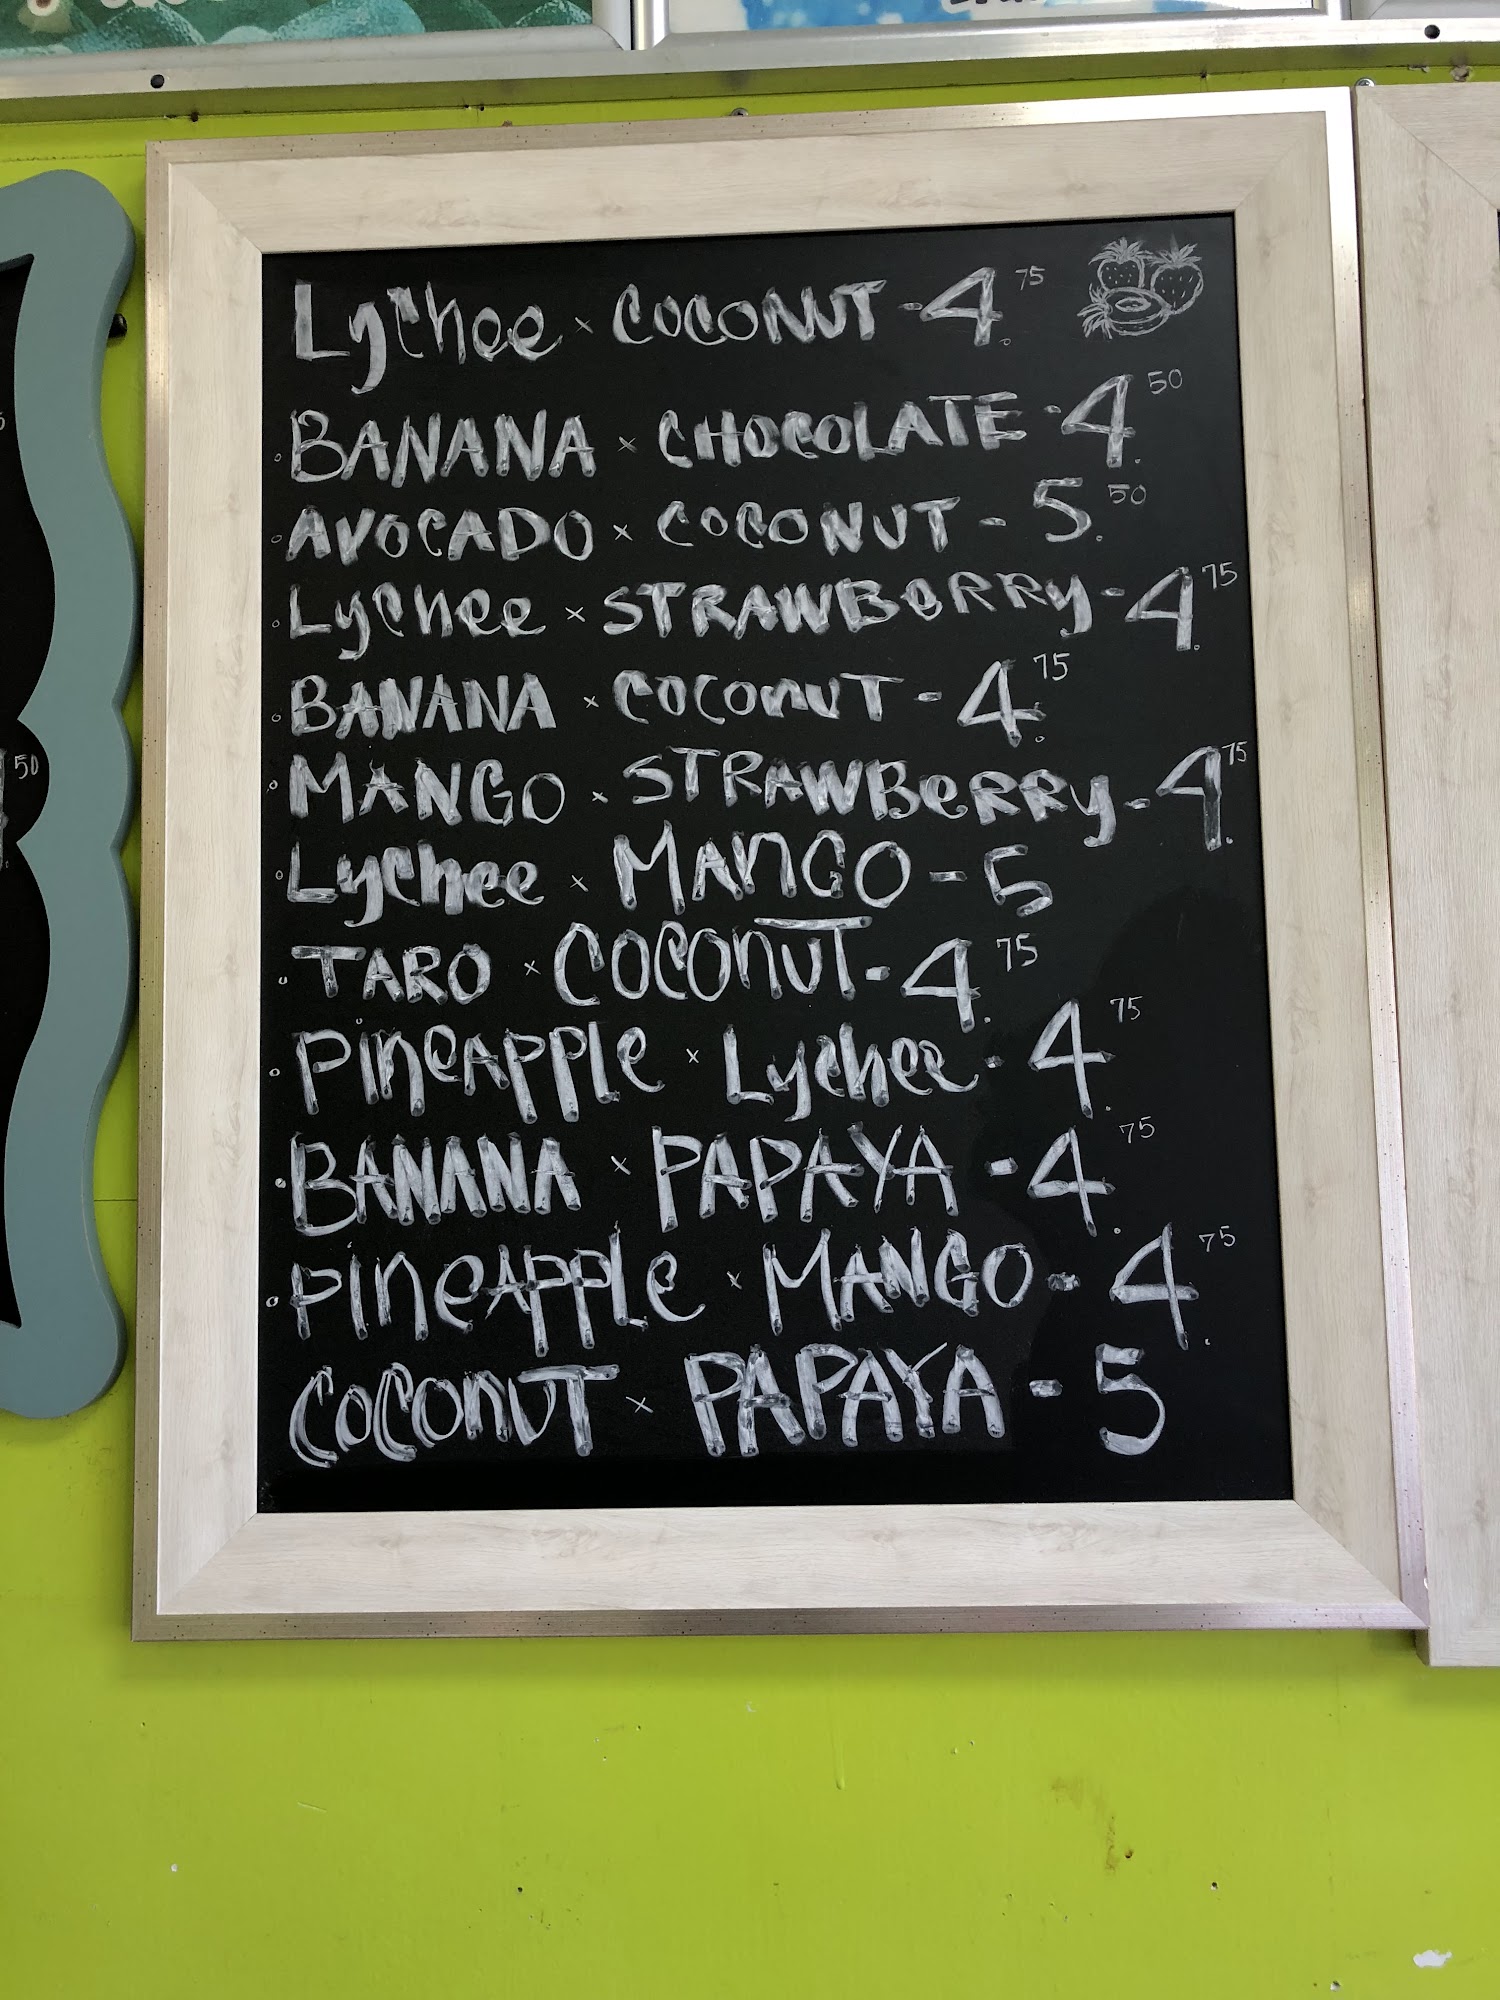 Lychee × COCONUT - 4.75
BANANA × CHOCOLATE - 4.50
AVOCADO × COCONUT - 5.50
Lychee × STRAWBeRRy - 4.75
BANANA × COCONUT - 4.75
MANGO × STRAWBeRRy - 4.75
Lychee × MANGO - 5
TARO × COCONUT - 4.75
PineAPPle × Lychee - 4.75
BANANA × PAPAYA - 4.75
PineAPPle × MANGO - 4.75
COCONUT × PAPAYA - 5
50